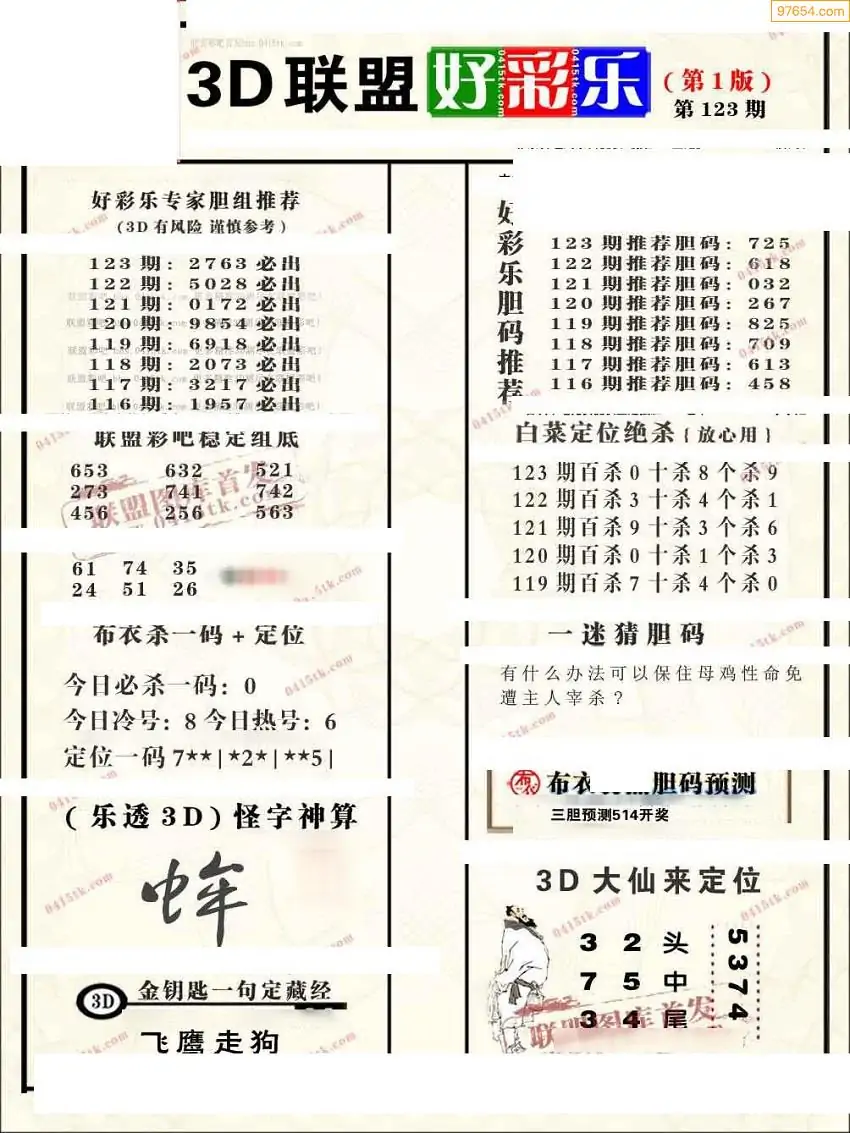 97654.com
3D联盟好彩乐(第1版)
第123期
好彩乐专家胆组推荐
(3D有风险 谨慎参考)
123期: 2763必出
122期: 5028必出
121期: 0172必出
120期: 9854必出
119期: 6918必出
118期: 2073必出
117期: 3217必出
116期: 1957必出
联盟彩吧稳定组底
653 632 521
273 741 742
456 256 563
联盟图库首发
0415tk.com
61 74 35
24 51 26
布衣杀一码+定位
今日必杀一码: 0
今日冷号: 8 今日热号: 6
定位一码7**|*2*|**5|
(乐透3D)怪字神算
3D 金钥匙一句定藏经
飞鹰走狗
好彩乐胆码推荐
123期推荐胆码: 725
122期推荐胆码: 618
121期推荐胆码: 032
120期推荐胆码: 267
119期推荐胆码: 825
118期推荐胆码: 709
117期推荐胆码: 613
116期推荐胆码: 458
白菜定位绝杀{放心用}
123期百杀0十杀8个杀9
122期百杀3十杀4个杀1
121期百杀9十杀3个杀6
120期百杀0十杀1个杀3
119期百杀7十杀4个杀0
一迷猜胆码
有什么办法可以保住母鸡性命免
遭主人宰杀?
布衣 胆码预测
三胆预测514开奖
3D大仙来定位
3 2 头
7 5 中
3 4 尾
5374
联盟图库首发
0415tk.com